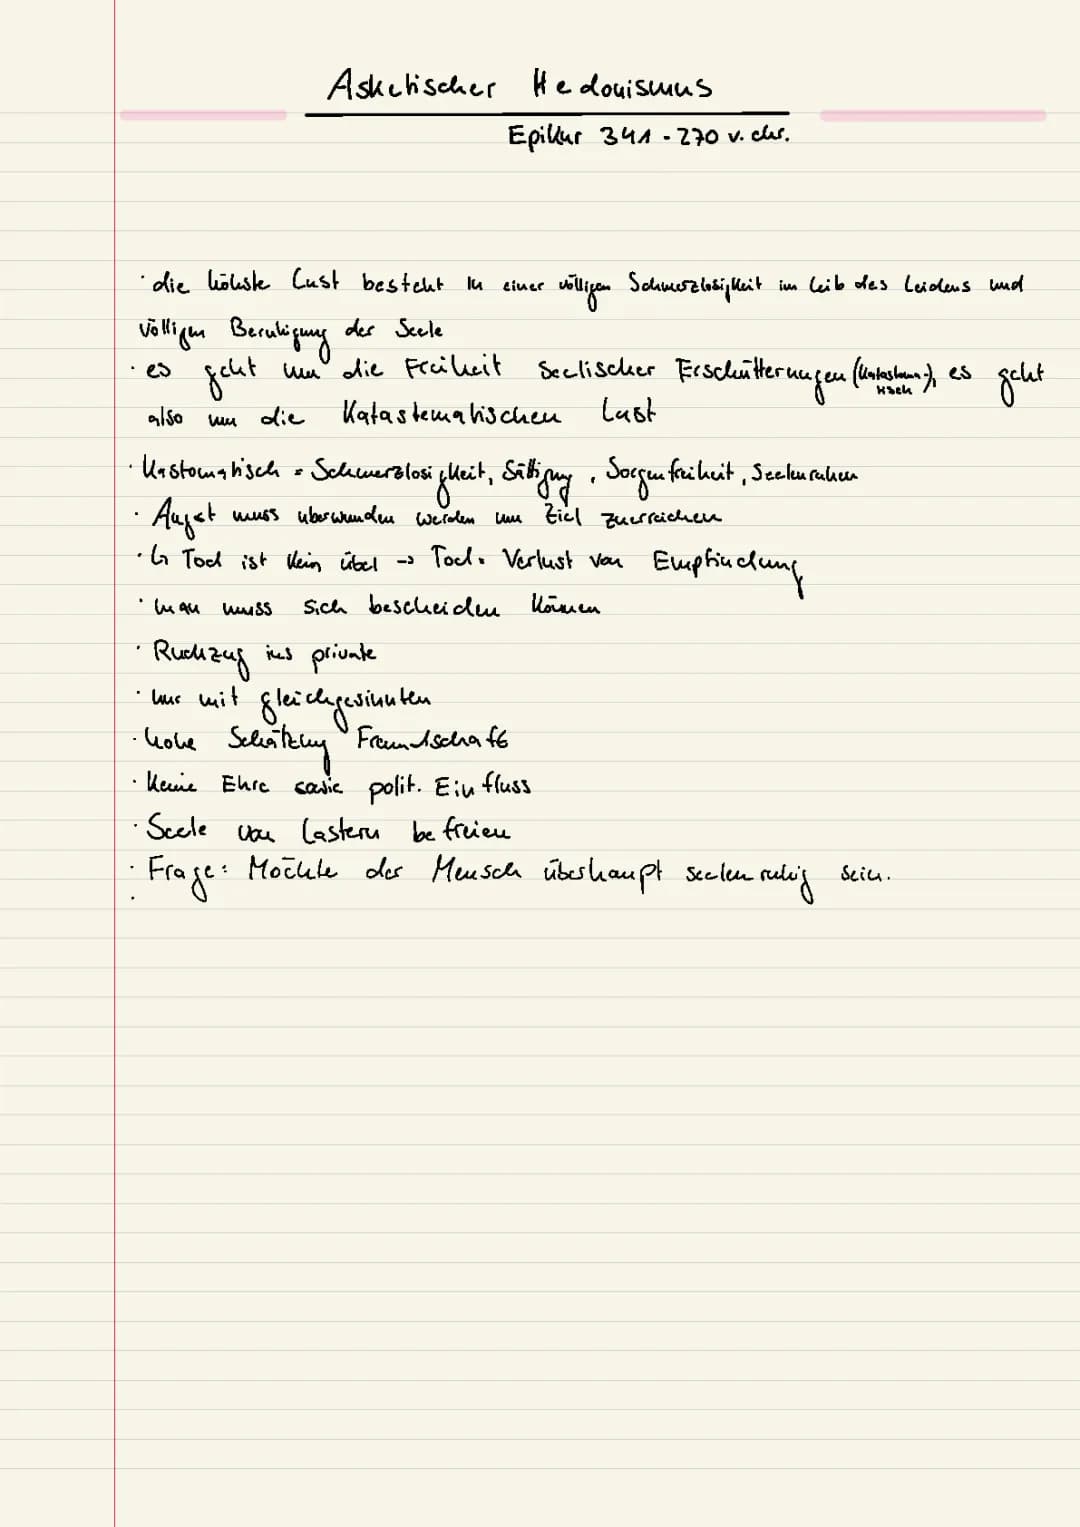 Asketischer Hedonismus
Epikur 341 - 270 v. chr.
· die höhste Lust besteht in einer völligen Schmerzlosigkeit im Leib des Leidens und
völligen Beruhigung der Seele
· es geht um die Freiheit Seelischer Erschütterungen (Katastema-), es geht
tisch
also um die Katastematischen Lust
· Kastomatisch = Schmerzlosigkeit, Sättigung, Sorgenfreiheit, Seelenruhen
· Angst muss uberwunden werden um Ziel zuerreichen
· ↳ Tod ist kein übel -> Tod = Verlust von Empfindung
· man muss sich bescheiden können
· Ruckzug ins private
· nur mit gleichgesinnten
· hohe Schätzung Freundschaft
· Keine Ehre sowie polit. Einfluss
· Seele von Lastern befreien
· Frage: Möchte der Mensch überhaupt seelenruhig sein.
·